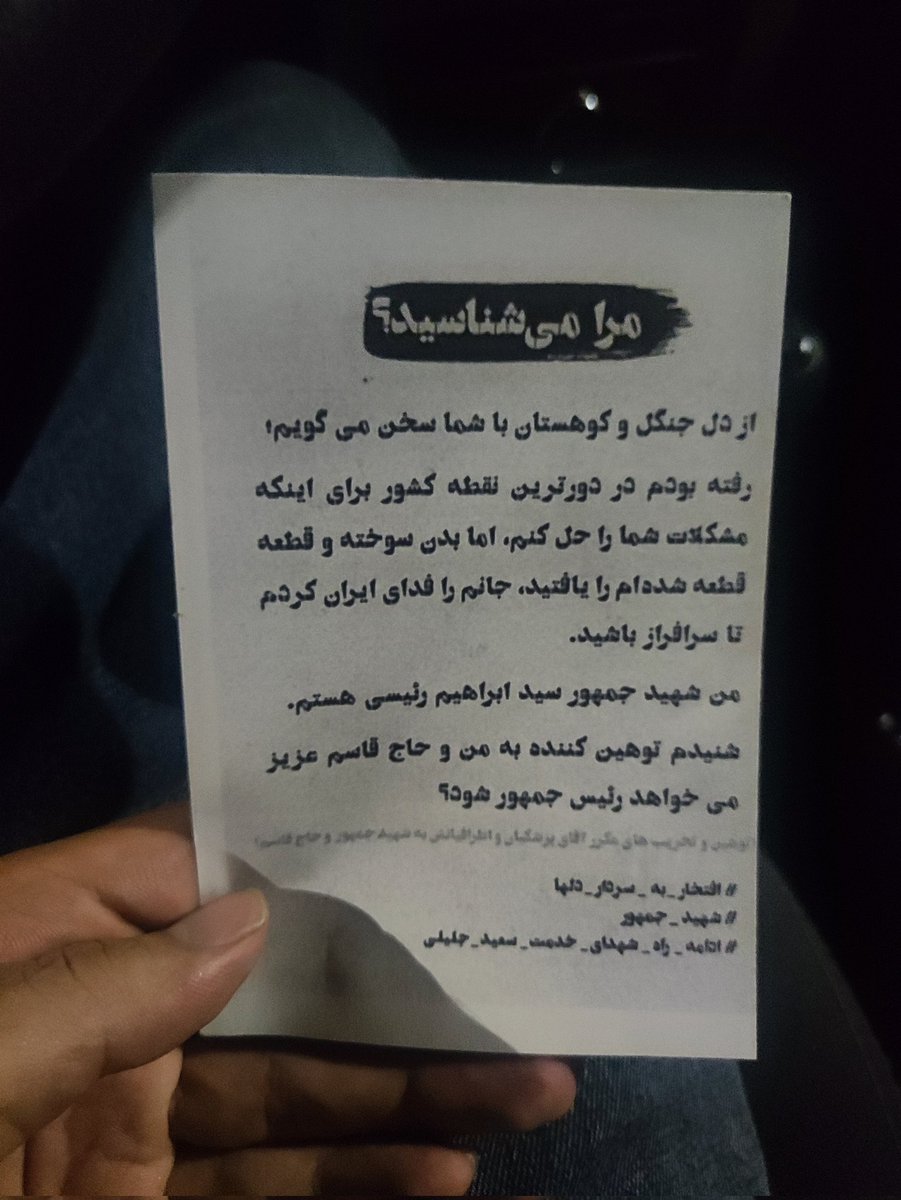 مرا می‌شناسید؟
از دل جنگل و کوهستان با شما سخن می گویم؛
رفته بودم در دورترین نقطه کشور برای اینکه
مشکلات شما را حل کنم، اما بدن سوخته و قطعه
قطعه شده‌ام را یافتید، جانم را فدای ایران کردم
تا سرافراز باشید.
من شهید جمهور سید ابراهیم رئیسی هستم.
شنیدم توهین کننده به من و حاج قاسم عزیز
می خواهد رئیس جمهور شود؟
(توهین و تخریب های مکرر آقای پزشکیان و اطرافیانش به شهید جمهور و حاج قاسم)
#افتخار_به_سردار_دلها
#شهید_جمهور
#ادامه_راه_شهدای_خدمت_سعید_جلیلی